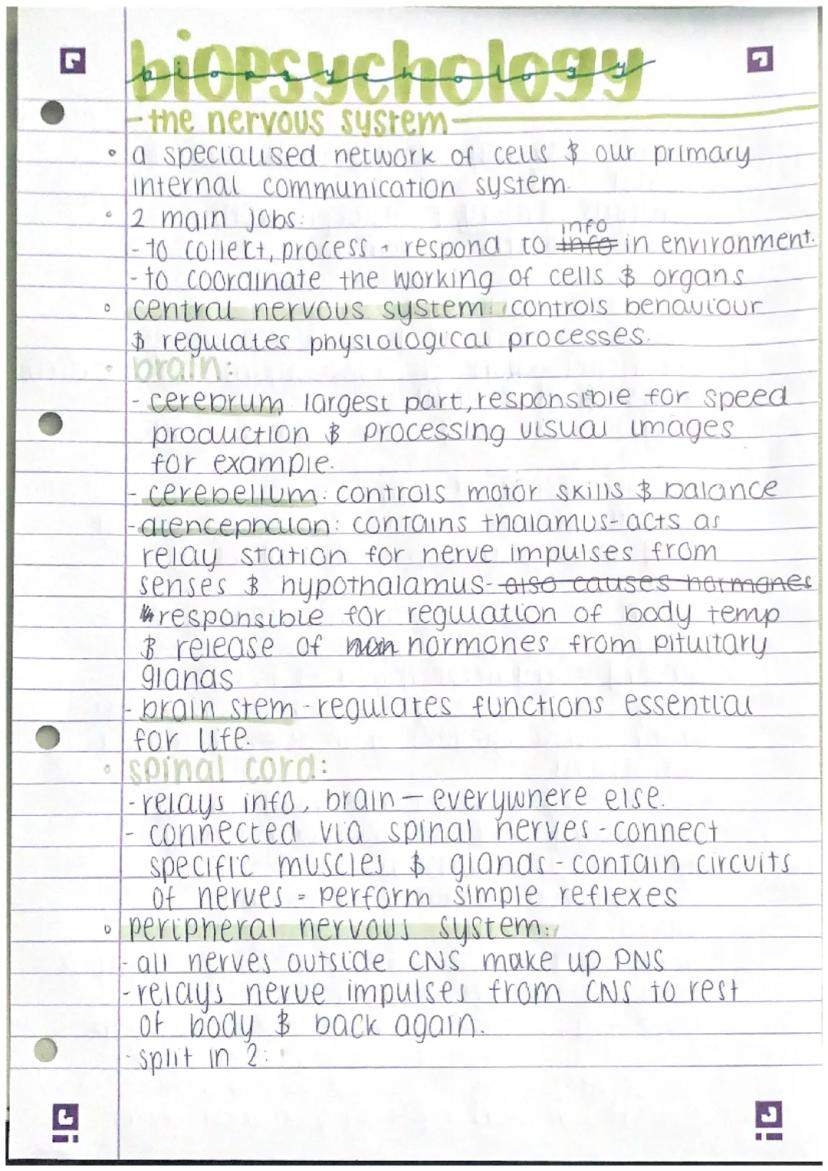 biopsychology
biopsychology
-the nervous system
◦ a specialised network of cells & our primary
internal communication system.
◦ 2 main jobs:
info
- to collect, process + respond to info in environment.
- to coordinate the working of cells & organs
◦ central nervous system: controls behaviour
& regulates physiological processes.
◦ brain:
- cerebrum largest part, responsible for speed
production & processing visual images
for example.
- cerebellum: controls motor skills & balance
- diencephalon: contains thalamus-acts as
relay station for nerve impulses from
senses & hypothalamus- also causes hormones
responsible for regulation of body temp
& release of hormones from pituitary
glands
- brain stem - regulates functions essential
for life.
◦ spinal cord:
- relays info, brain — everywhere else.
- connected via spinal nerves - connect
specific muscles & glands - contain circuits
of nerves = perform simple reflexes
◦ peripheral nervous system:
- all nerves outside CNS make up PNS
- relays nerve impulses from CNS to rest
of body & back again.
- split in 2: